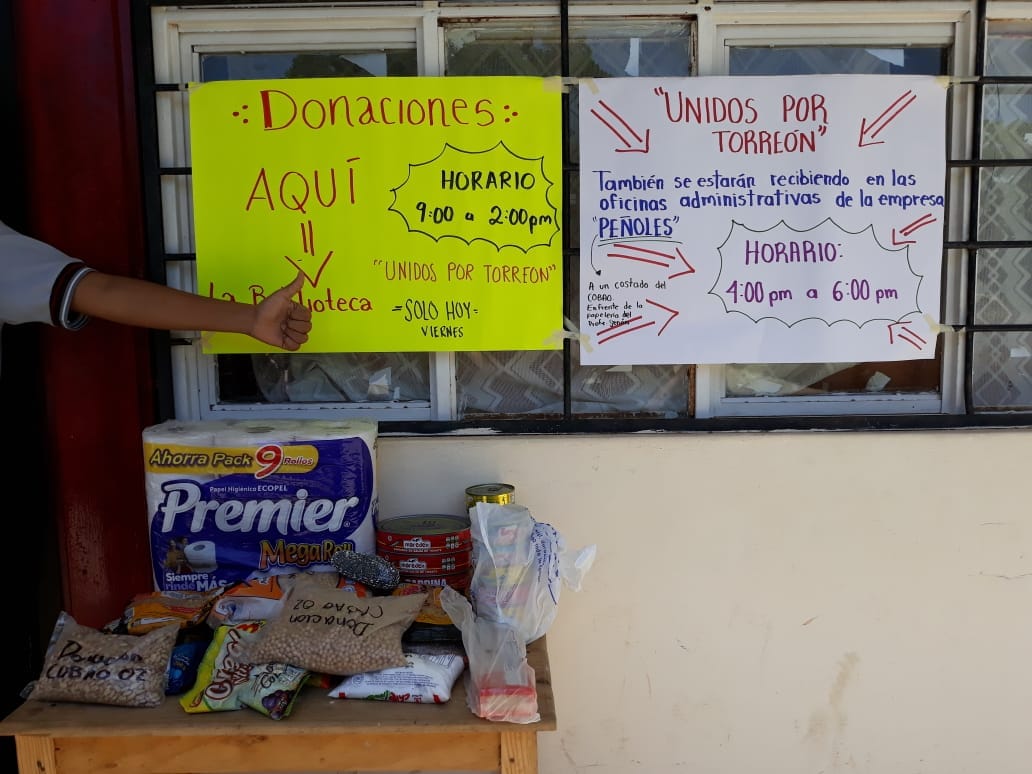 Donaciones
AQUÍ
HORARIO
9:00 a 2:00pm
"UNIDOS POR TORREÓN"
La Biblioteca
=SOLO HOY=
VIERNES
"UNIDOS POR
TORREÓN"
También se estarán recibiendo en las
oficinas administrativas de la empresa
"PEÑOLES"
HORARIO:
4:00 pm a 6:00 pm
A un costado del
COBAO.
Enfrente de la
papelería del
Ahorra Pack 9 Rollos
Papel Higiénico ECOPEL
Premier
MegaRoll
Siempre
rinde MÁS
maredén
maredén
SARDINA
Donación
CUBAO 02
Donacion